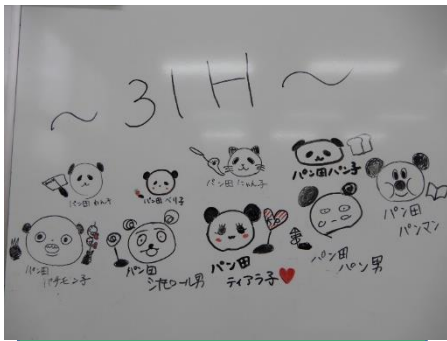 ～31H～
パン田わん子
パン田べり子
パン田にゃん子
パン田パン子
パン田
パンマン
パン田
パチモン子
パン田
シャモール男
パン田
ティアラ子
パン田
パン男